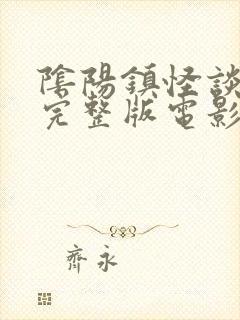 陰陽鎮怪談
完整版電影
齊永